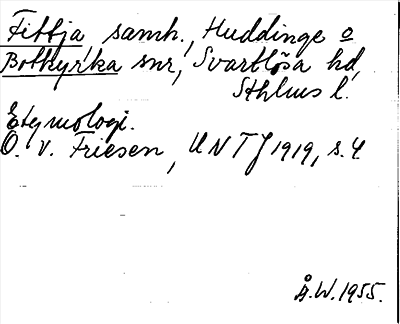 Fittja samh., Huddinge o
Botkyrka snr, Svartlösa hd,
Sthlms l.
Etymologi.
O. v. Friesen, UNTJ 1919, s. 4
Å.W. 1955.